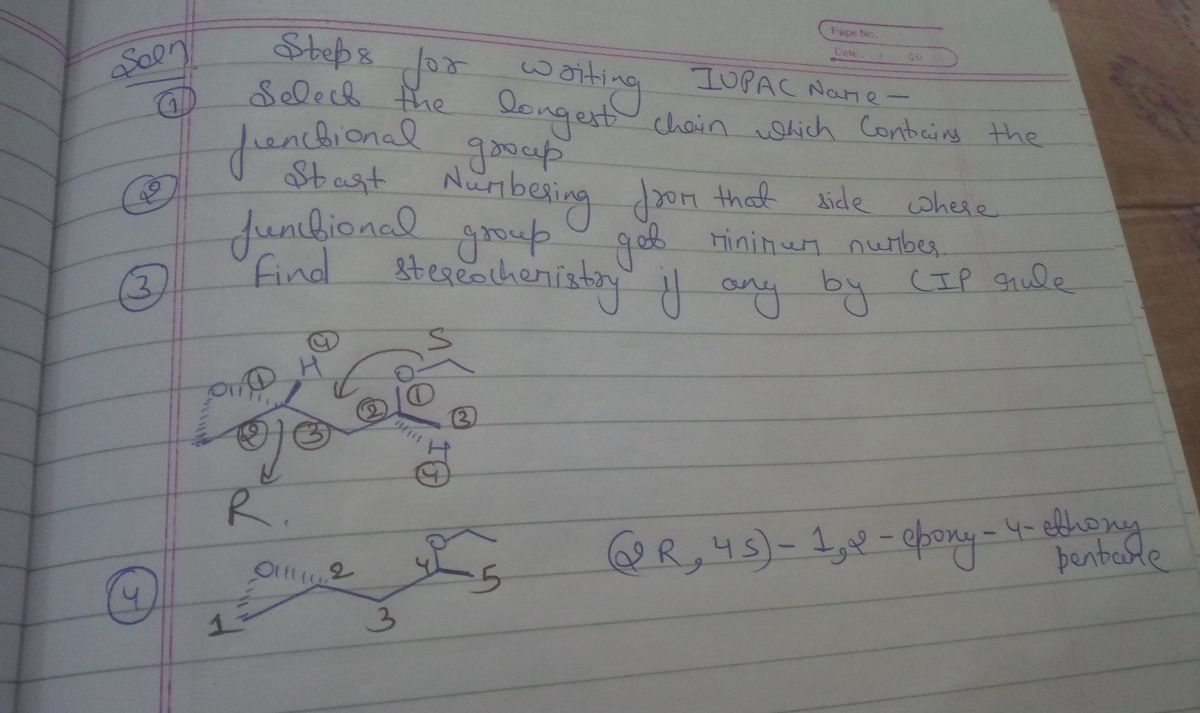 Page No.
Date
Soln Steps for writing IUPAC Name -
① Select the longest chain which Contains the
functional group
② Start Numbering from that side where
functional group get minimum number
③ Find stereochemistry if any by CIP rule
④ H S
O ① O
② ③ ② ① ③
H
④
R.
④ O 2 4 O 5
1 3
(2R, 4S) - 1,2 - epoxy - 4 - ethoxy
pentane